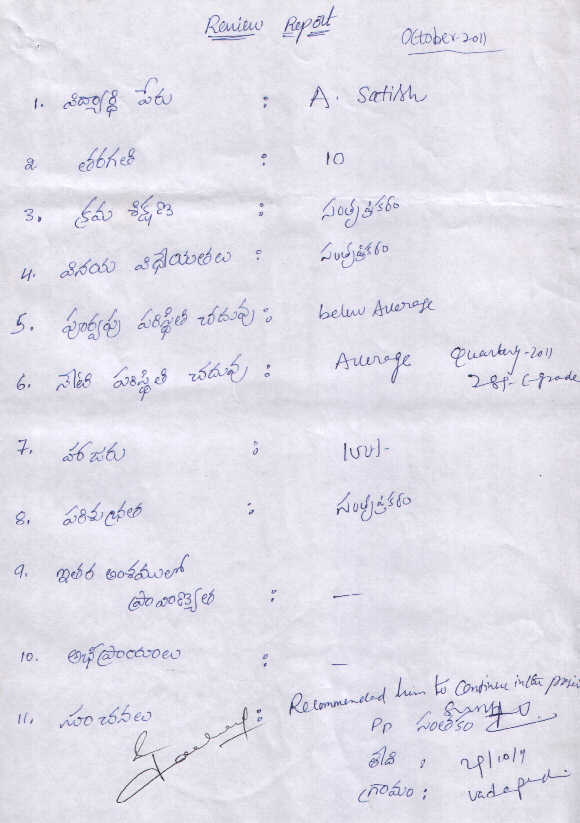 Review Report
October-2011
1. విద్యార్థి పేరు : A. Satish
2 తరగతి : 10
3. క్రమ శిక్షణ : సంతృప్తికరం
4. వినయ విధేయతలు : సంతృప్తికరం
5. పూర్వపు పరిస్థితి చదువు : below Average
6. నేటి పరిస్థితి చదువు : Average Quarterly-2011
C-grade
7. హాజరు :
8. పరిశుభ్రత : సంతృప్తికరం
9. ఇతర అంశములలో
ప్రావీణ్యత : —
10. అభిప్రాయాలు : —
11. సూచనలు : Recommended him to continue in the
PP సంతకం
తేది :
గ్రామం :